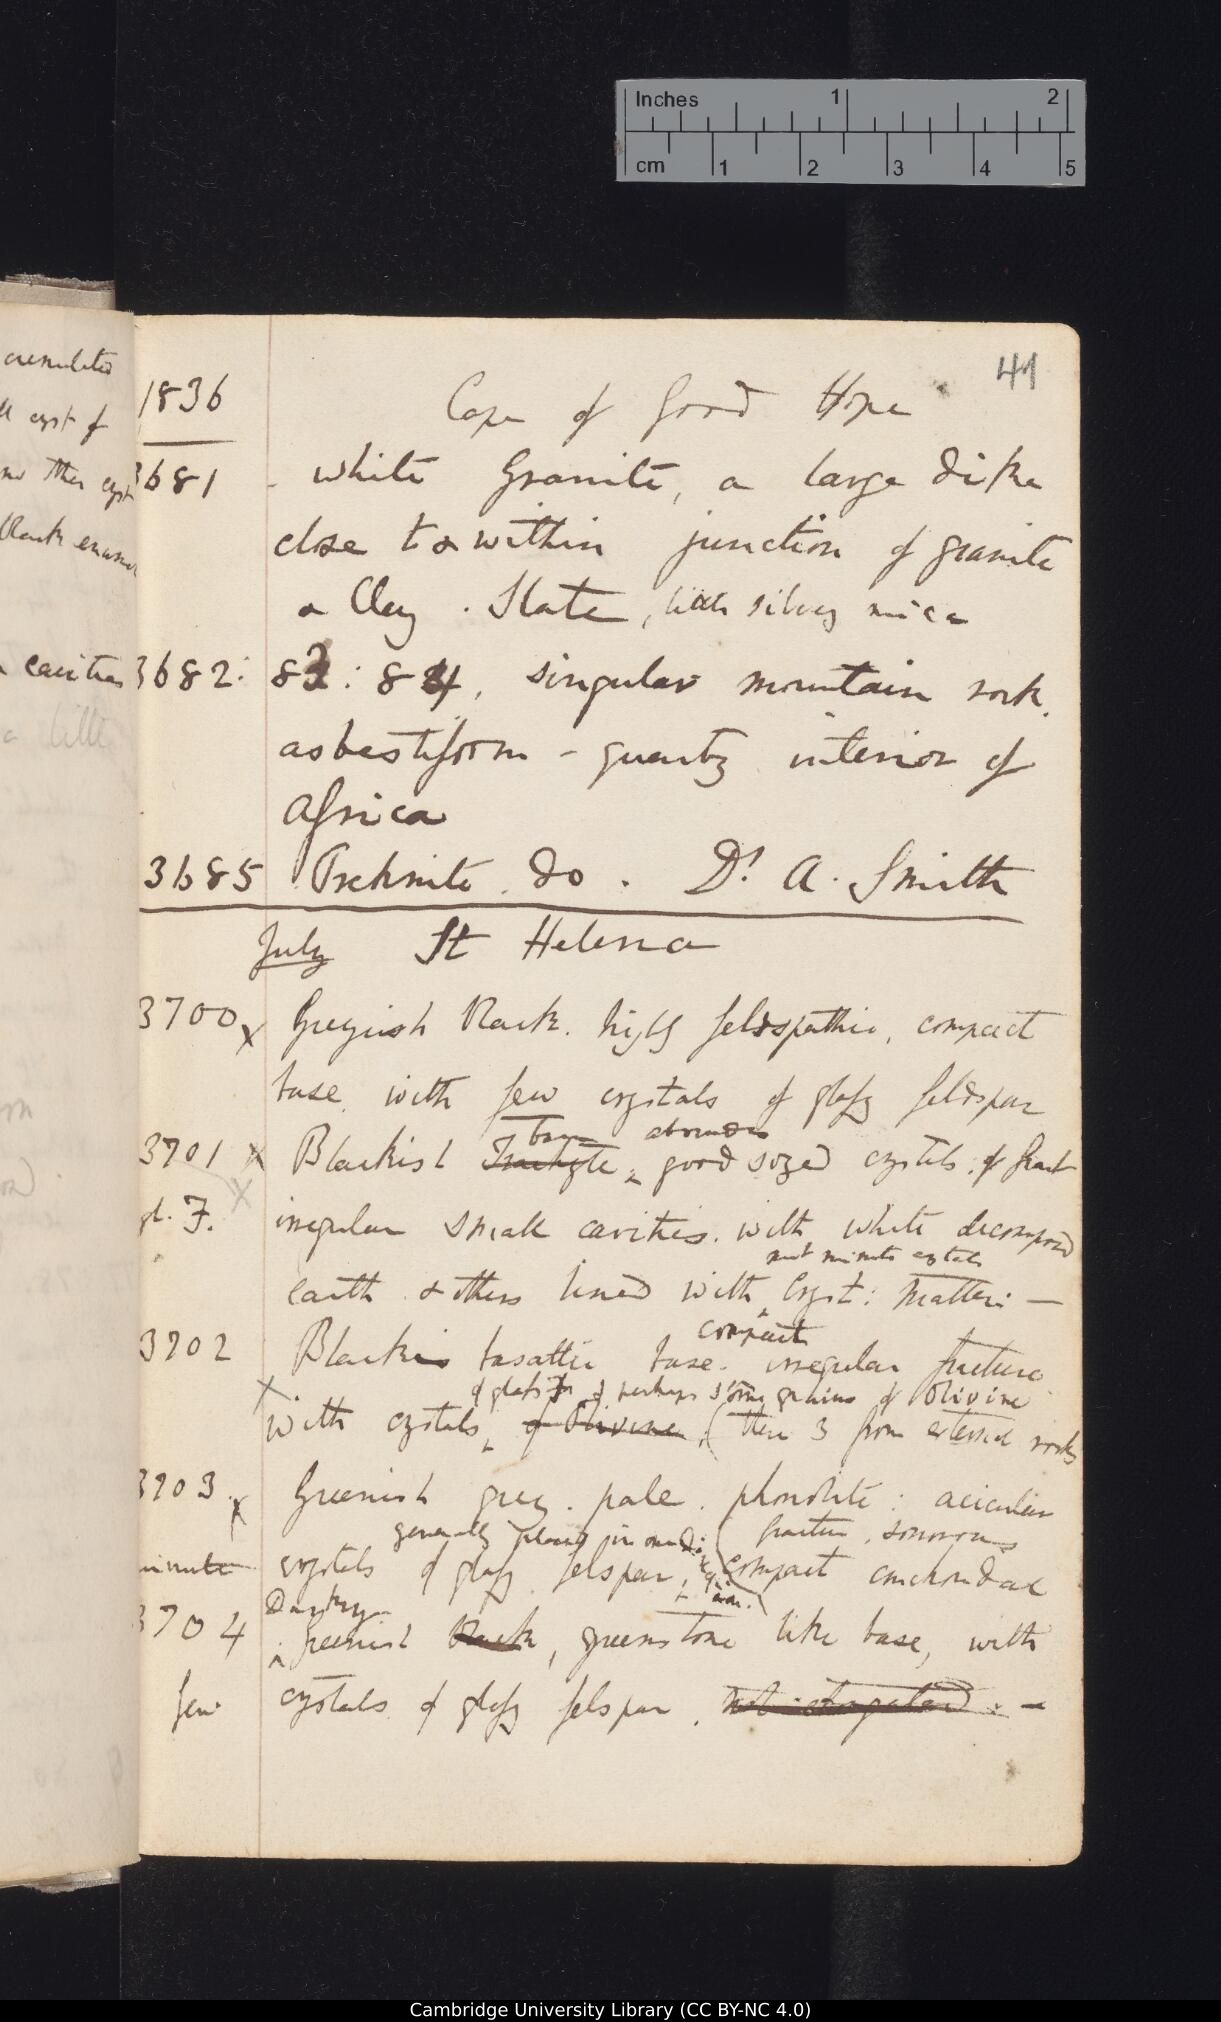 Inches 1 2
cm 1 2 3 4 5
41
1836 Cape of Good Hope
3681 - white Granite, a large dike
close to & within junction of granite
& Clay. Slate, with silvery mica
3682: 83: 84, singular mountain rock.
asbestiform - quartz interior of
Africa
3685 Prehnite do. Dr A. Smith
July St Helena
3700 x Greyish Black. highly feldspathic, compact
base with few crystals of glassy feldspar
base abounds
3701 x Blackish Trachyte good sized crystals; of
gl. F. irregular small cavities. with white decomposed
earth & others lined with Cryst: Matter: —
most minute crystals
compact
3702 Blackish basaltic base. irregular fracture
of glassy F & perhaps some grains of Olivine
x with crystals, of Olivine, (these 3 from external rocks
3703. x Greenish grey. pale. phonolite: acicular
generally placed in one fracture, sonorous
minute crystals of glassy felspar, compact conchoidal
3704 greenish Black, greenstone like base, with
few crystals of glassy felspar. not elongated: —
crenulated
cryst of
other
Black
cavities
a little
Cambridge University Library (CC BY-NC 4.0)